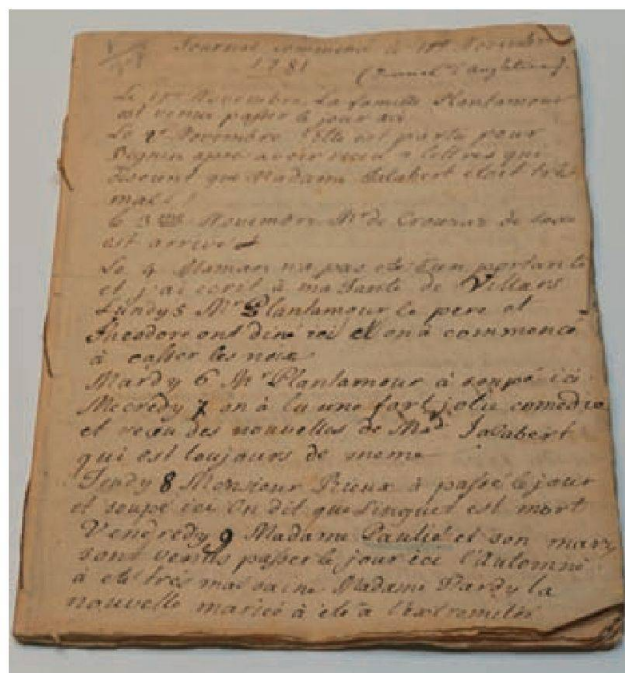 Journal commencé le 1er Novembre
1781
Le 1er Novembre La famille Plantamour
est venu passer le jour ici
Le 2 Novembre Elle est partie pour
apres avoir recu lettres qui
disent que Madame Jalabert etoit tres
mal
le 3 Novembre Mr de Crousaz de
est arrivé
Le 4 Maman n'a pas ete bien portante
et j'ai ecrit à ma Tante de Villars
Lundy 5 Mr Plantamour le pere et
Theodore ont diné ici et on à commencé
à casser les noix
Mardy 6 Mr Plantamour à soupé ici
Mecredy 7 on à lu une fort jolie comedie
et recu des nouvelles de Mad Jalabert
qui est toujours de meme
Jeudy 8 Monsieur Rieux à passé le jour
et soupé ici On dit que Linguet est mort
Vendredy 9 Madame Paulié et son mary
sont venus passer le jour ici l'Automne
à ete tres mal saine Madame Tardy la
nouvelle mariée à ete à l'extremité